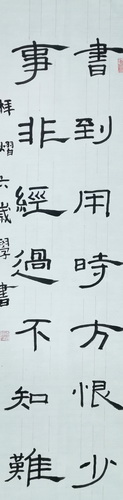 書到用時方恨少
事非經過不知難
梓熠六歲學書